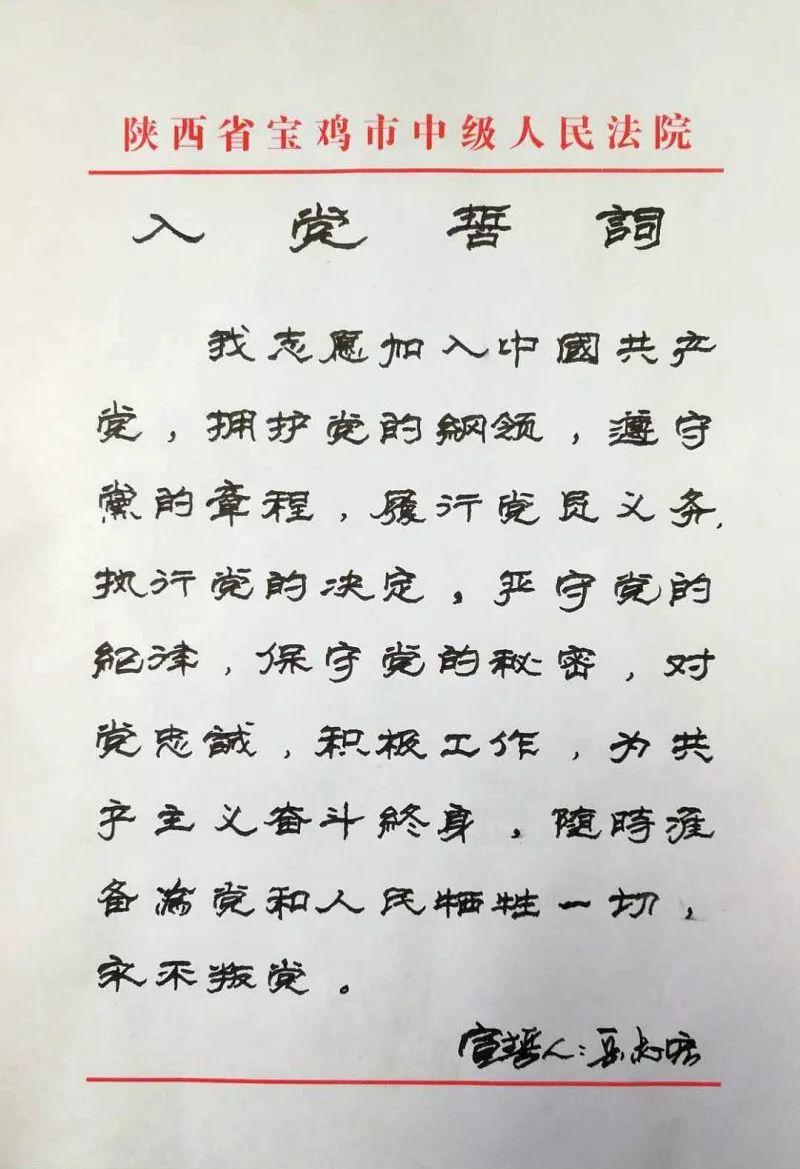 陕西省宝鸡市中级人民法院
入党誓詞
我志愿加入中國共产
党，拥护党的綱领，遵守
黨的章程，履行党员义务，
执行党的决定，严守党的
紀律，保守党的秘密，对
党忠誠，积极工作，为共
产主义奋斗終身，随時准
备為党和人民牺牲一切，
永不叛党。
宣誓人：